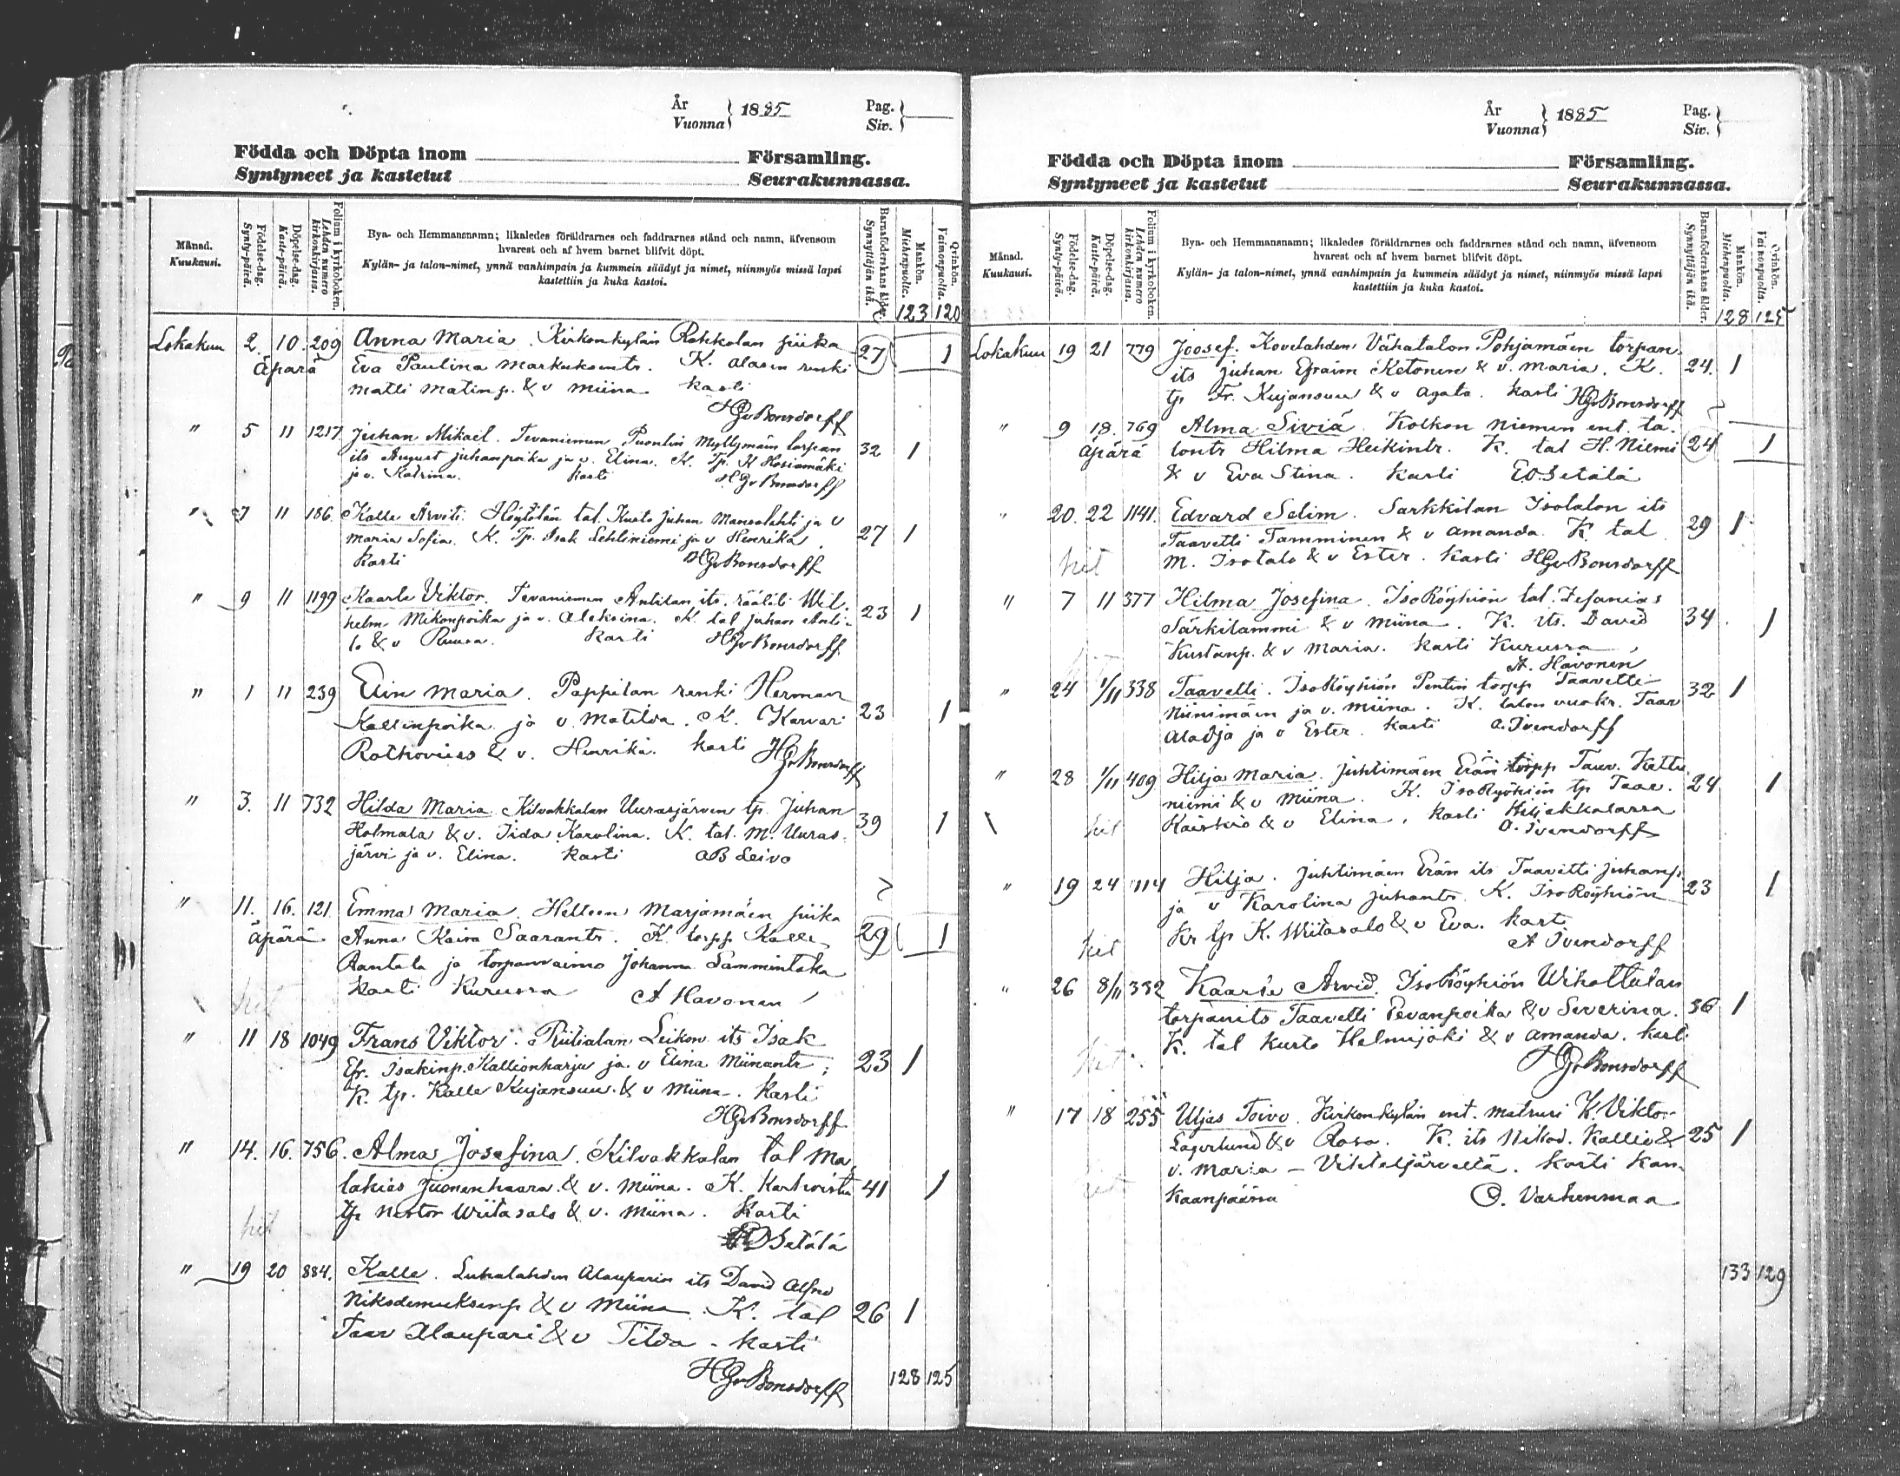 År
Vuonna
1885
Pag.
Siv.
Födda och Döpta inom Församling.
Syntyneet ja kastetut Seurakunnassa.
Månad.
Kuukausi.
Födelse-dag.
Synty-päivä.
Döpelse-dag.
Kaste-päivä.
Folium i kyrkoboken.
Lehden numero kirkonkirjassa.
Bya- och Hemmansnamn; likaledes föräldrarnes och faddrarnes stånd och namn, äfvensom
hvarest och af hvem barnet blifvit döpt.
Kylän- ja talon-nimet, ynnä vanhimpain ja kummein säädyt ja nimet, niinmyös missä lapsi
kastettiin ja kuka kastoi.
Barnaföderskans ålder.
Synnyttäjän ikä.
Mankön.
Miehenpuolta.
Qvinkön.
Vaimonpuolta.
123 120
Lokakuu 2. 10. 209 Anna Maria. Kirkonkylän Rahkolan piika 27 1
Äpärä Eva Paulina Markuksentr. K. Alasen renki
Matti Matinp. & v Miina kasti
HGvBonsdorff
" 5 11 1217 Juhan Mikael. Tevaniemen Puontin Myllymäen torpan 32 1
its August Juhanpoika ja v. Elina. K. Tp. K Hosiamäki
ja v. Katrina. kasti HGvBonsdorff
" 7 11 186 Kalle Arviti. Höytölän tal. Kusto Juhan Mansolahti ja v 27 1
Maria Sofia. K. Tp. Isak Lehtiniemi ja v Henrika
kasti HGvBonsdorff
" 9 11 1199 Kaarle Viktor. Tevaniemen Anttilan its. räätäli Wil- 23 1
helm Mikonpoika ja v. Aleksina. K. tal Juhan Antti-
la & v Ruusa. kasti HGvBonsdorff
" 1 11 239 Elin Maria. Pappilan renki Herman 23 1
Kallenpoika ja v. Matilda. K. Karvari
Rothovius & v. Henrika. kasti HGvBonsdorff
" 3. 11 732 Hilda Maria. Kilvakkalan Uurasjärven tp. Juhan 39 1
Holmala & v. Iida Karolina. K. tal. M. Uuras-
järvi ja v. Elina. kasti OB Leivo
" 11. 16. 121 Emma Maria. Helleen Marjamäen piika 29 1
Äpärä Anna Kaisa Saarantr. K. torpp Kalle
Rantala ja torpanvaimo Johanna Lammintaka
kasti Kurussa A Havonen
hit
" 11 18 1049 Frans Viktor. Piilialan Leikon its Isak 23 1
Efr. Isakinp. Kallionharju ja v Elina Miinantr;
K. tp. Kalle Kujansuu & v Miina. kasti
HGvBonsdorff
" 14. 16. 756. Alma Josefina. Kilvakkalan tal Ma- 41 1
lakias Juonenhaara & v. Miina. K. Karhoistu
tp Nestor Wiitasalo & v. Miina. kasti
hit EO Setälä
" 19 20 884. Kalle. Luhalahden Alauparin its David Alfred 26 1
Nikodemuksenp & v Miina. K. tal
Taav Alaupari & v Tilda. kasti
HGvBonsdorff 128 125
År
Vuonna
1885
Pag.
Siv.
Födda och Döpta inom Församling.
Syntyneet ja kastetut Seurakunnassa.
Månad.
Kuukausi.
Födelse-dag.
Synty-päivä.
Döpelse-dag.
Kaste-päivä.
Folium i kyrkoboken.
Lehden numero kirkonkirjassa.
Bya- och Hemmansnamn; likaledes föräldrarnes och faddrarnes stånd och namn, äfvensom
hvarest och af hvem barnet blifvit döpt.
Kylän- ja talon-nimet, ynnä vanhimpain ja kummein säädyt ja nimet, niinmyös missä lapsi
kastettiin ja kuka kastoi.
Barnaföderskans ålder.
Synnyttäjän ikä.
Mankön.
Miehenpuolta.
Qvinkön.
Vaimonpuolta.
128 125
Lokakuu 19 21 779 Joosef. Kovelahden Vähätalon Pohjamäen torpan 24. 1
its Juhan Efraim Ketonen & v. Maria. K.
tp Fr. Kujansuu & v Agata. kasti HGvBonsdorff
" 9 18. 769 Alma Siviä. Kolkon Niemen ent. ta- 24 1
Äpärä lontr Hilma Heikintr. K. tal H. Niemi
& v Eva Stina. kasti EO Setälä
" 20. 22 1141. Edvard Selim. Sarkkilan Isotalon its 29 1
Taavetti Tamminen & v Amanda. K. tal
hit M. Isotalo & v Ester. kasti HGvBonsdorff
" 7 11 377 Hilma Josefina. IsoRöyhiön tal. Zefanias 34 1
Särkilammi & v Miina. K. its. David
Kustanp. & v Maria. kasti Kurussa
A. Havonen
" 24 1/11 338 Taavetti. IsoRöyhiön Pentin torpp Taavetti 32 1
Niinimäen ja v. Miina. K. talon vuokr. Taav
Aladja ja v Ester. kasti A. Ivendorff
" 28 1/11 409 Hilja Maria. Juhtimäen Erän torpp Taav. Kattu- 24 1
niemi & v Miina. K. IsoRöyhiön tp Taav.
hit Kaiskio & v Elina, kasti Kiljakkalassa
A. Ivendorff
" 19 24 1114 Hilja. Juhtimäen Erän its Taavitti Juhanp. 23 1
ja v Karolina Juhantr. K. IsoRöyhiön
Kr tp K. Wiitasalo & v Eva. kasti
hit A Ivendorff
" 26 8/11 332 Kaarle Arvid. IsoRöyhiön Wihattulan 36 1
torpanits Taavetti Eevanpoika & v Severina.
K. tal Kusto Helmijoki & v Amanda. kasti
hit HGvBonsdorff
" 17 18 255 Uljas Toivo. Kirkonkylän ent. maturi K. Vikto- 25 1
Lagerlund & v Rosa. K. its Nikod. Kallio &
v. Maria – Vihteljärveltä. kasti Kan-
hit kaanpäässä O. Varhenmaa
133 129